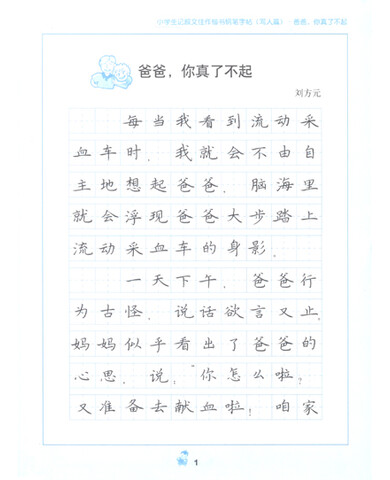 小学生记叙文佳作楷书钢笔字帖（写人篇）·爸爸，你真了不起
爸爸，你真了不起
刘方元
每当我看到流动采
血车时，我就会不由自
主地想起爸爸，脑海里
就会浮现爸爸大步踏上
流动采血车的身影。
一天下午，爸爸行
为古怪，说话欲言又止。
妈妈似乎看出了爸爸的
心思，说：“你怎么啦？
又准备去献血啦！咱家
1